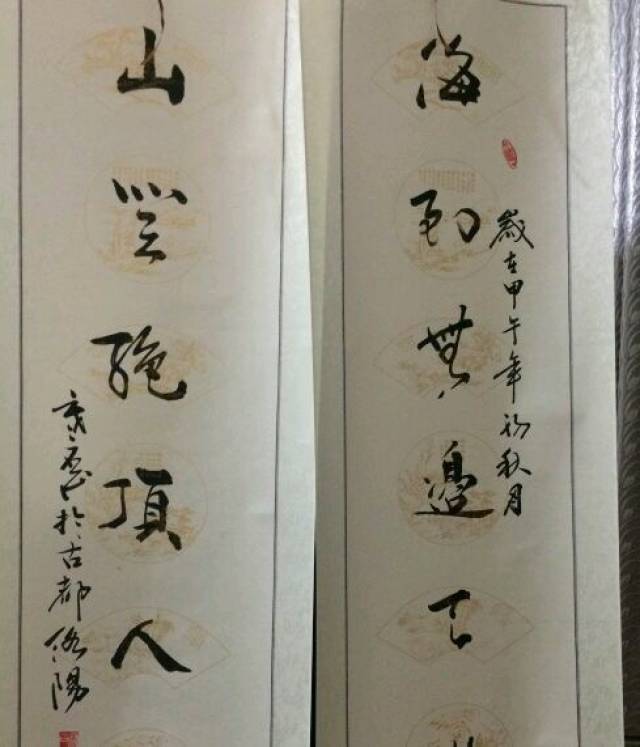 歲在甲午年初秋月
海到無邊天
山登絶頂人
於古都洛陽